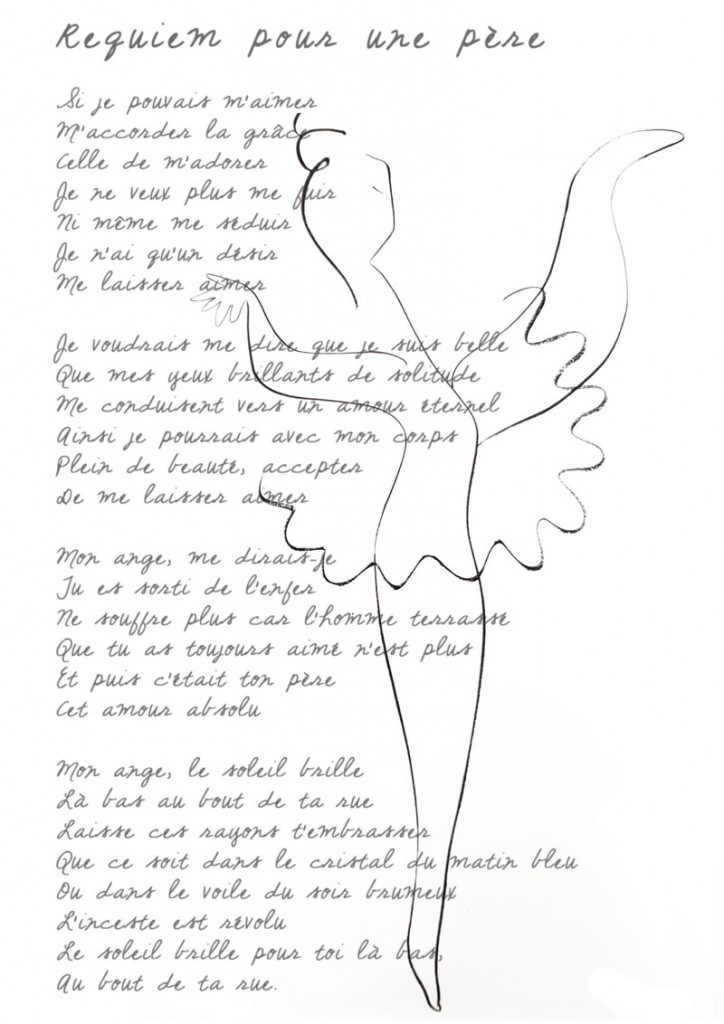 Requiem pour une père
Si je pouvais m'aimer
M'accorder la grâce
Celle de m'adorer
Je ne veux plus me fuir
Ni même me séduir
Je n'ai qu'un désir
Me laisser aimer
Je voudrais me dire que je suis belle
Que mes yeux brillants de solitude
Me conduisent vers un amour éternel
Ainsi je pourrais avec mon corps
Plein de beauté, accepter
De me laisser aimer
Mon ange, me dirais-je
Tu es sorti de l'enfer
Ne souffre plus car l'homme terrassé
Que tu as toujours aimé n'est plus
Et puis c'était ton père
Cet amour absolu
Mon ange, le soleil brille
Là bas au bout de ta rue
Laisse ces rayons t'embrasser
Que ce soit dans le cristal du matin bleu
Ou dans le voile du soir brumeux
L'inceste est révolu
Le soleil brille pour toi là bas,
Au bout de ta rue.